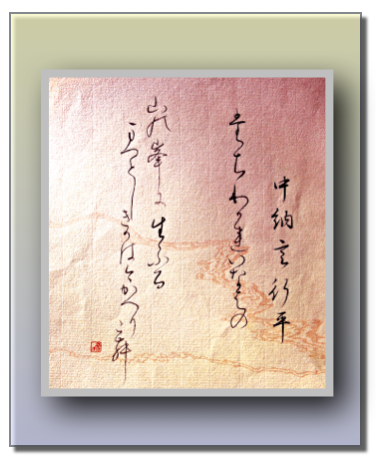 中納言行平
たちわかれいなはの
山の峯に生ふる
まつとしきかは今かへり
こむ